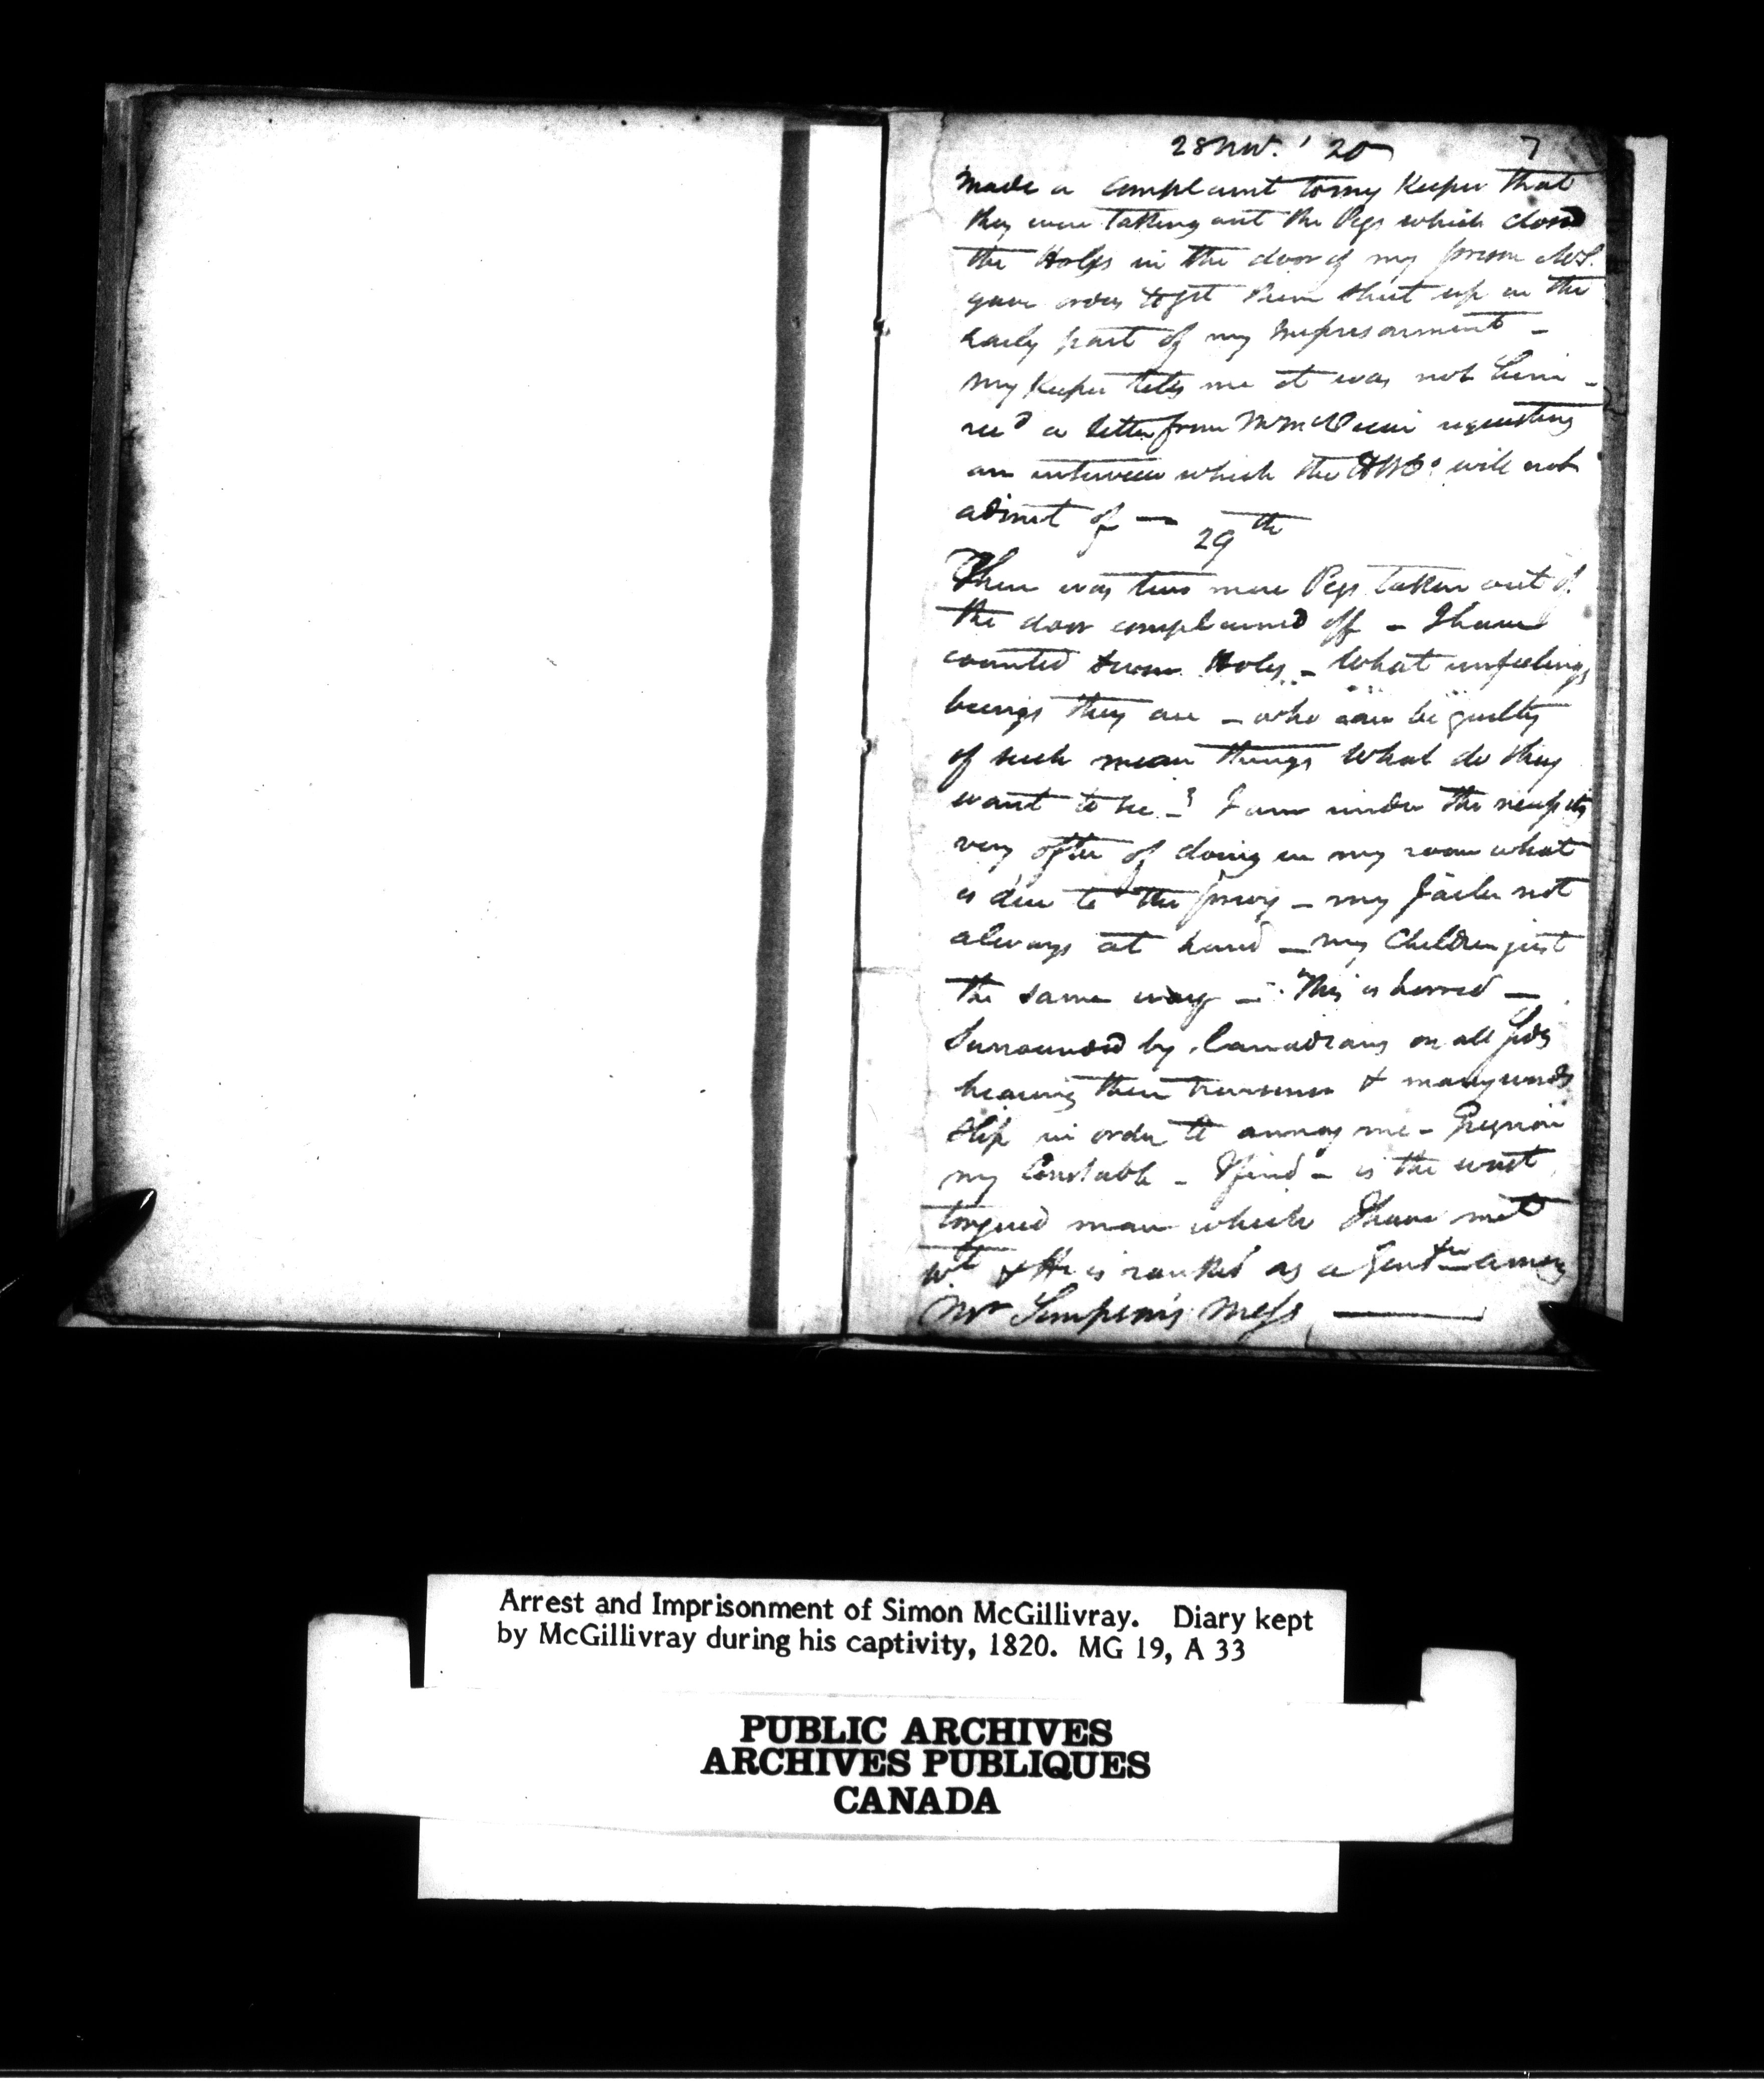 28 Nov. ' 20 7
made a complaint to my Keeper that
they were Taking out the Pegs which closed
the Holes in the door of my prison Mr S.
gave orders to get them shut up in the
early part of my Imprisonment -
my Keeper tells me it was not him -
recd a letter from Mr requesting
an interview which the HBCo will not
admit of — 29th
There was two more Pegs taken out of
the door complained off - I have
counted seven Holes - What unfeeling
beings they are - who can be guilty
of such mean things What do they
want to see - ? I am under the necessity
very often of doing in my room what
is due to the privy - my Jailer not
always at hand - my Children just
the same way - This is horrid —
Surrounded by Canadians on all sides
hearing their & many words
slip in order to annoy me -
my Constable - I find - is the worst
tongued man which I have met
wt & He is ranked as a Gentn among
Mr Simpson's Mess ———
Arrest and Imprisonment of Simon McGillivray. Diary kept
by McGillivray during his captivity, 1820. MG 19, A 33
PUBLIC ARCHIVES
ARCHIVES PUBLIQUES
CANADA